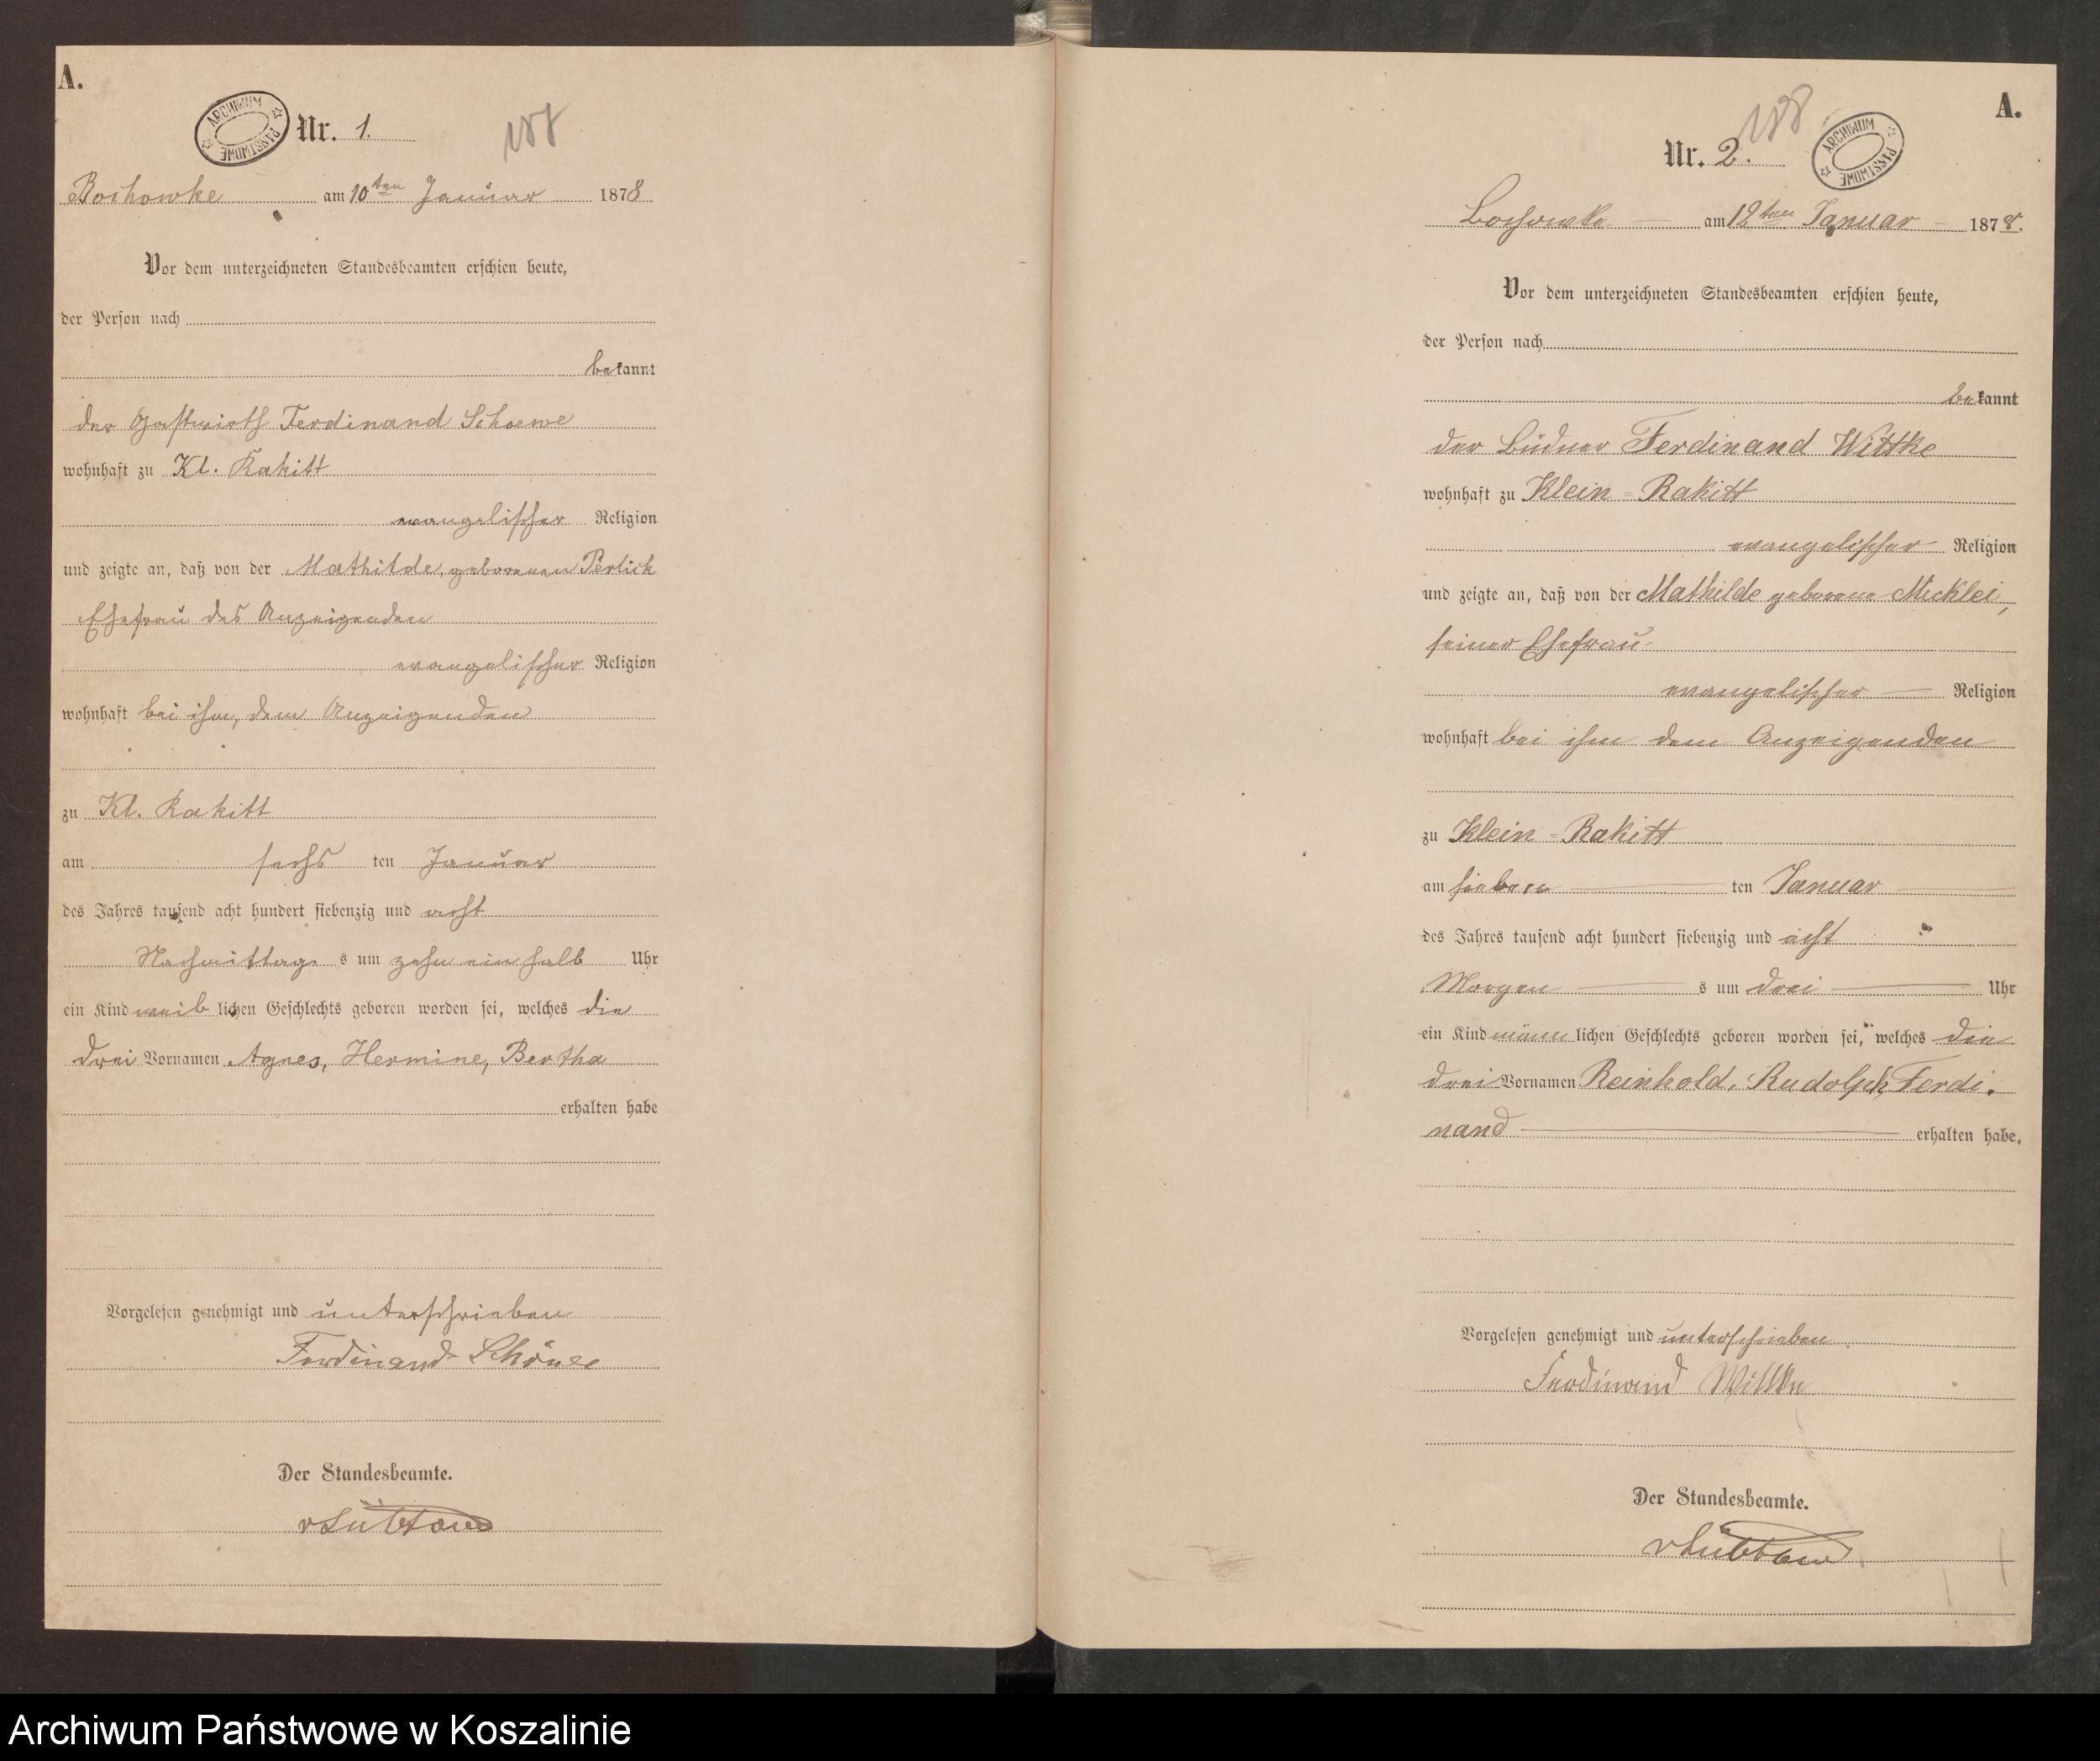 A.
ARCHIWUM PAŃSTWOWE
Nr. 1.
188
Bochowke am 10ten Januar 1878
Vor dem unterzeichneten Standesbeamten erschien heute,
der Person nach
bekannt
der Gastwirth Ferdinand Schoewe
wohnhaft zu Kl. Rakitt
evangelischer Religion
und zeigte an, daß von der Mathilde, geborenen Perlick
Ehefrau des Anzeigenden
evangelischer Religion
wohnhaft bei ihm, dem Anzeigenden
zu Kl. Rakitt
am sechs ten Januar
des Jahres tausend acht hundert siebenzig und acht
Nachmittag s um zehn ein halb Uhr
ein Kind weib lichen Geschlechts geboren worden sei, welches die
drei Vornamen Agnes, Hermine, Bertha
erhalten habe
Vorgelesen genehmigt und unterschrieben
Ferdinand
Der Standesbeamte.
v Lübtow
A.
188
Nr. 2.
ARCHIWUM PAŃSTWOWE
Bochowke am 12ten Januar 1878.
Vor dem unterzeichneten Standesbeamten erschien heute,
der Person nach
bekannt
der Büdner Ferdinand Wittke
wohnhaft zu Klein-Rakitt
evangelischer Religion
und zeigte an, daß von der Mathilde geborene Micklei,
seiner Ehefrau
evangelischer Religion
wohnhaft bei ihm dem Anzeigenden
zu Klein-Rakitt
am sieben ten Januar
des Jahres tausend acht hundert siebenzig und acht
Morgen s um drei Uhr
ein Kind männ lichen Geschlechts geboren worden sei, welches die
drei Vornamen Reinhold, Rudolph, Ferdi-
nand erhalten habe.
Vorgelesen genehmigt und unterschrieben
Ferdinand Wittke
Der Standesbeamte.
v Lübtow
Archiwum Państwowe w Koszalinie